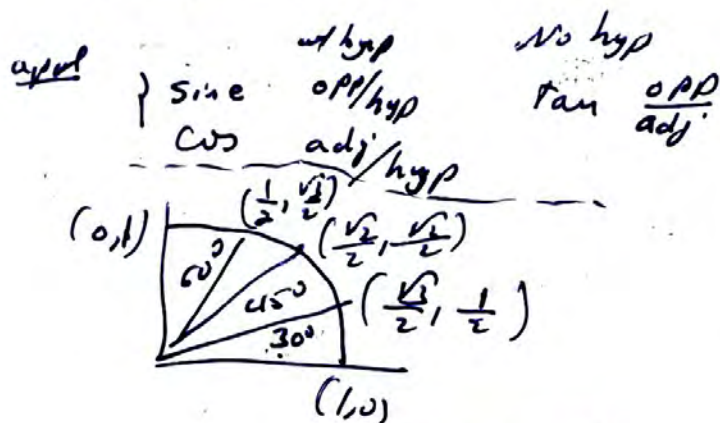 w/ hyp No hyp
} sine opp/hyp tan opp/adj
cos adj/hyp
(0,1) (1/2, √3/2)
(√2/2, √2/2)
60°
45° (√3/2, 1/2)
30°
(1,0)